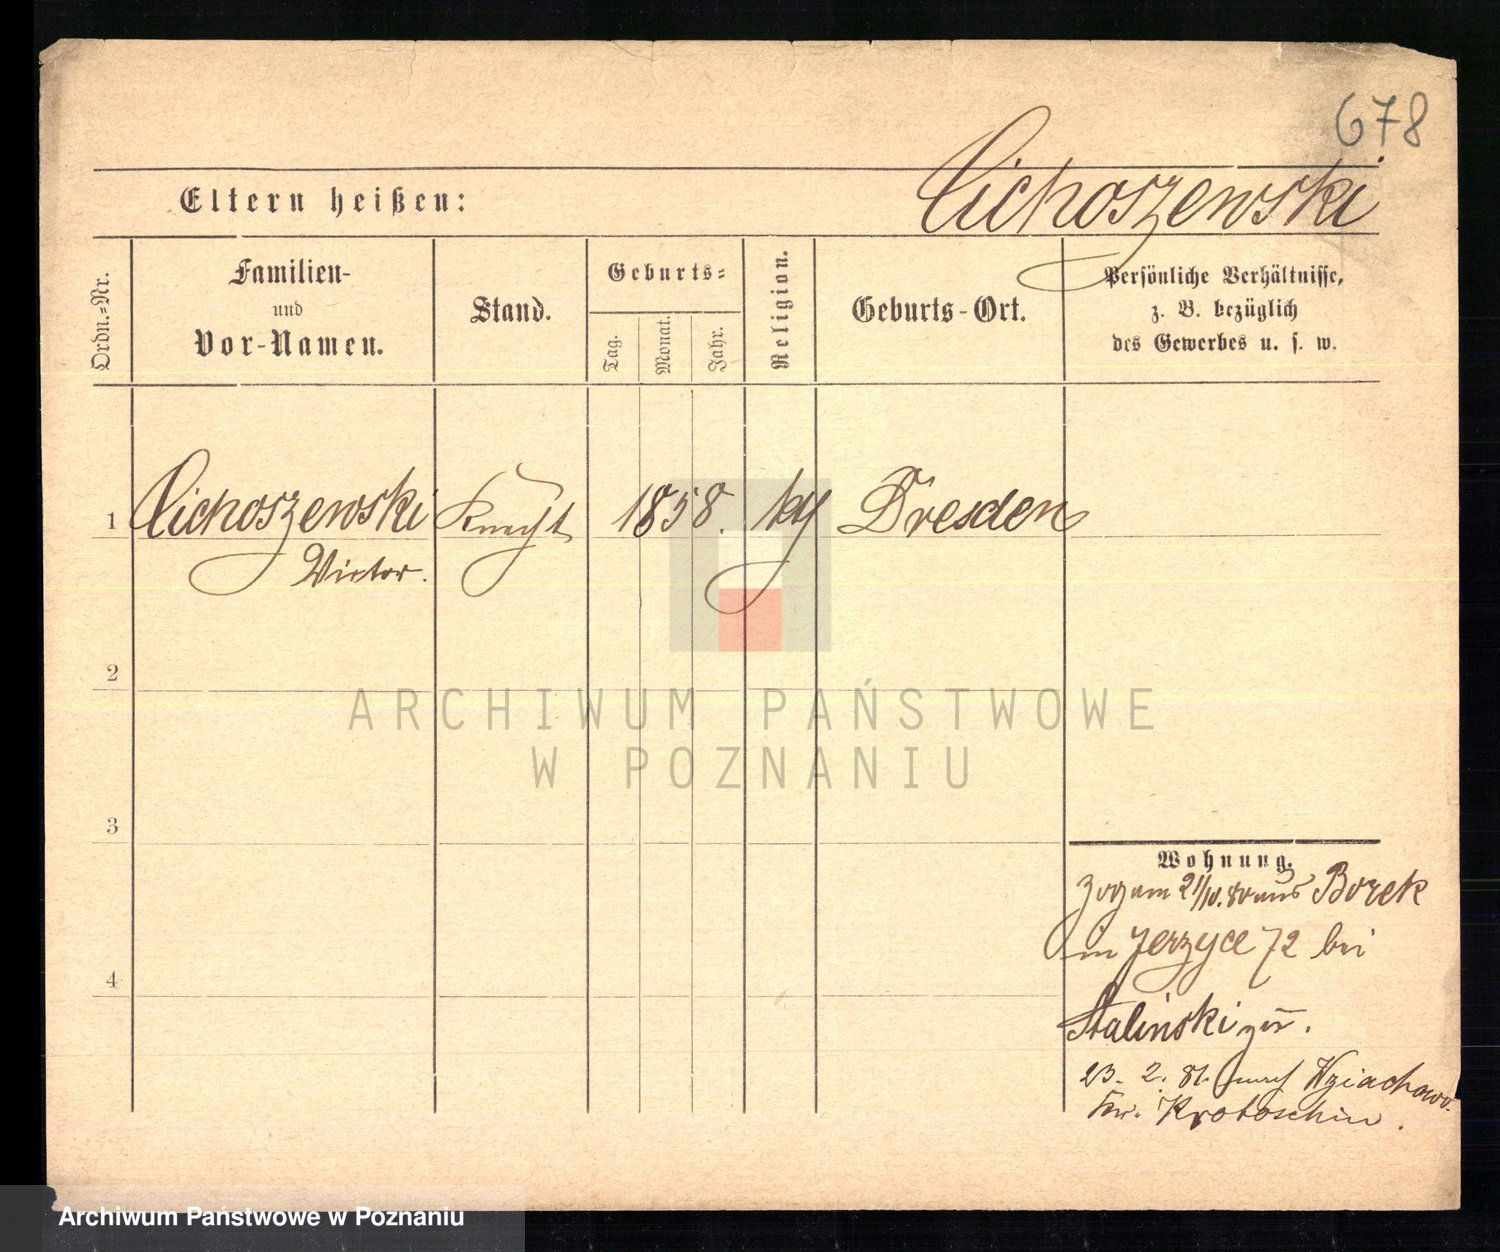 678
Cichoszewski
Eltern heißen:
Ordn.-Nr.
Familien-
und
Vor-Namen.
Stand.
Geburts-
Tag.
Monat.
Jahr.
Religion.
Geburts-Ort.
Persönliche Verhältnisse,
z. B. bezüglich
des Gewerbes u. s. w.
1 Cichoszewski Knecht 1858. Dresden
Victor.
2
3
4
Wohnung.
zog am 21/10. 80 aus Borek
in Jerzyce 72 bei
Stalinski zu.
23. 2. 81. nach Wziachow
Kr. Krotoschin.
ARCHIWUM PAŃSTWOWE
W POZNANIU
Archiwum Państwowe w Poznaniu